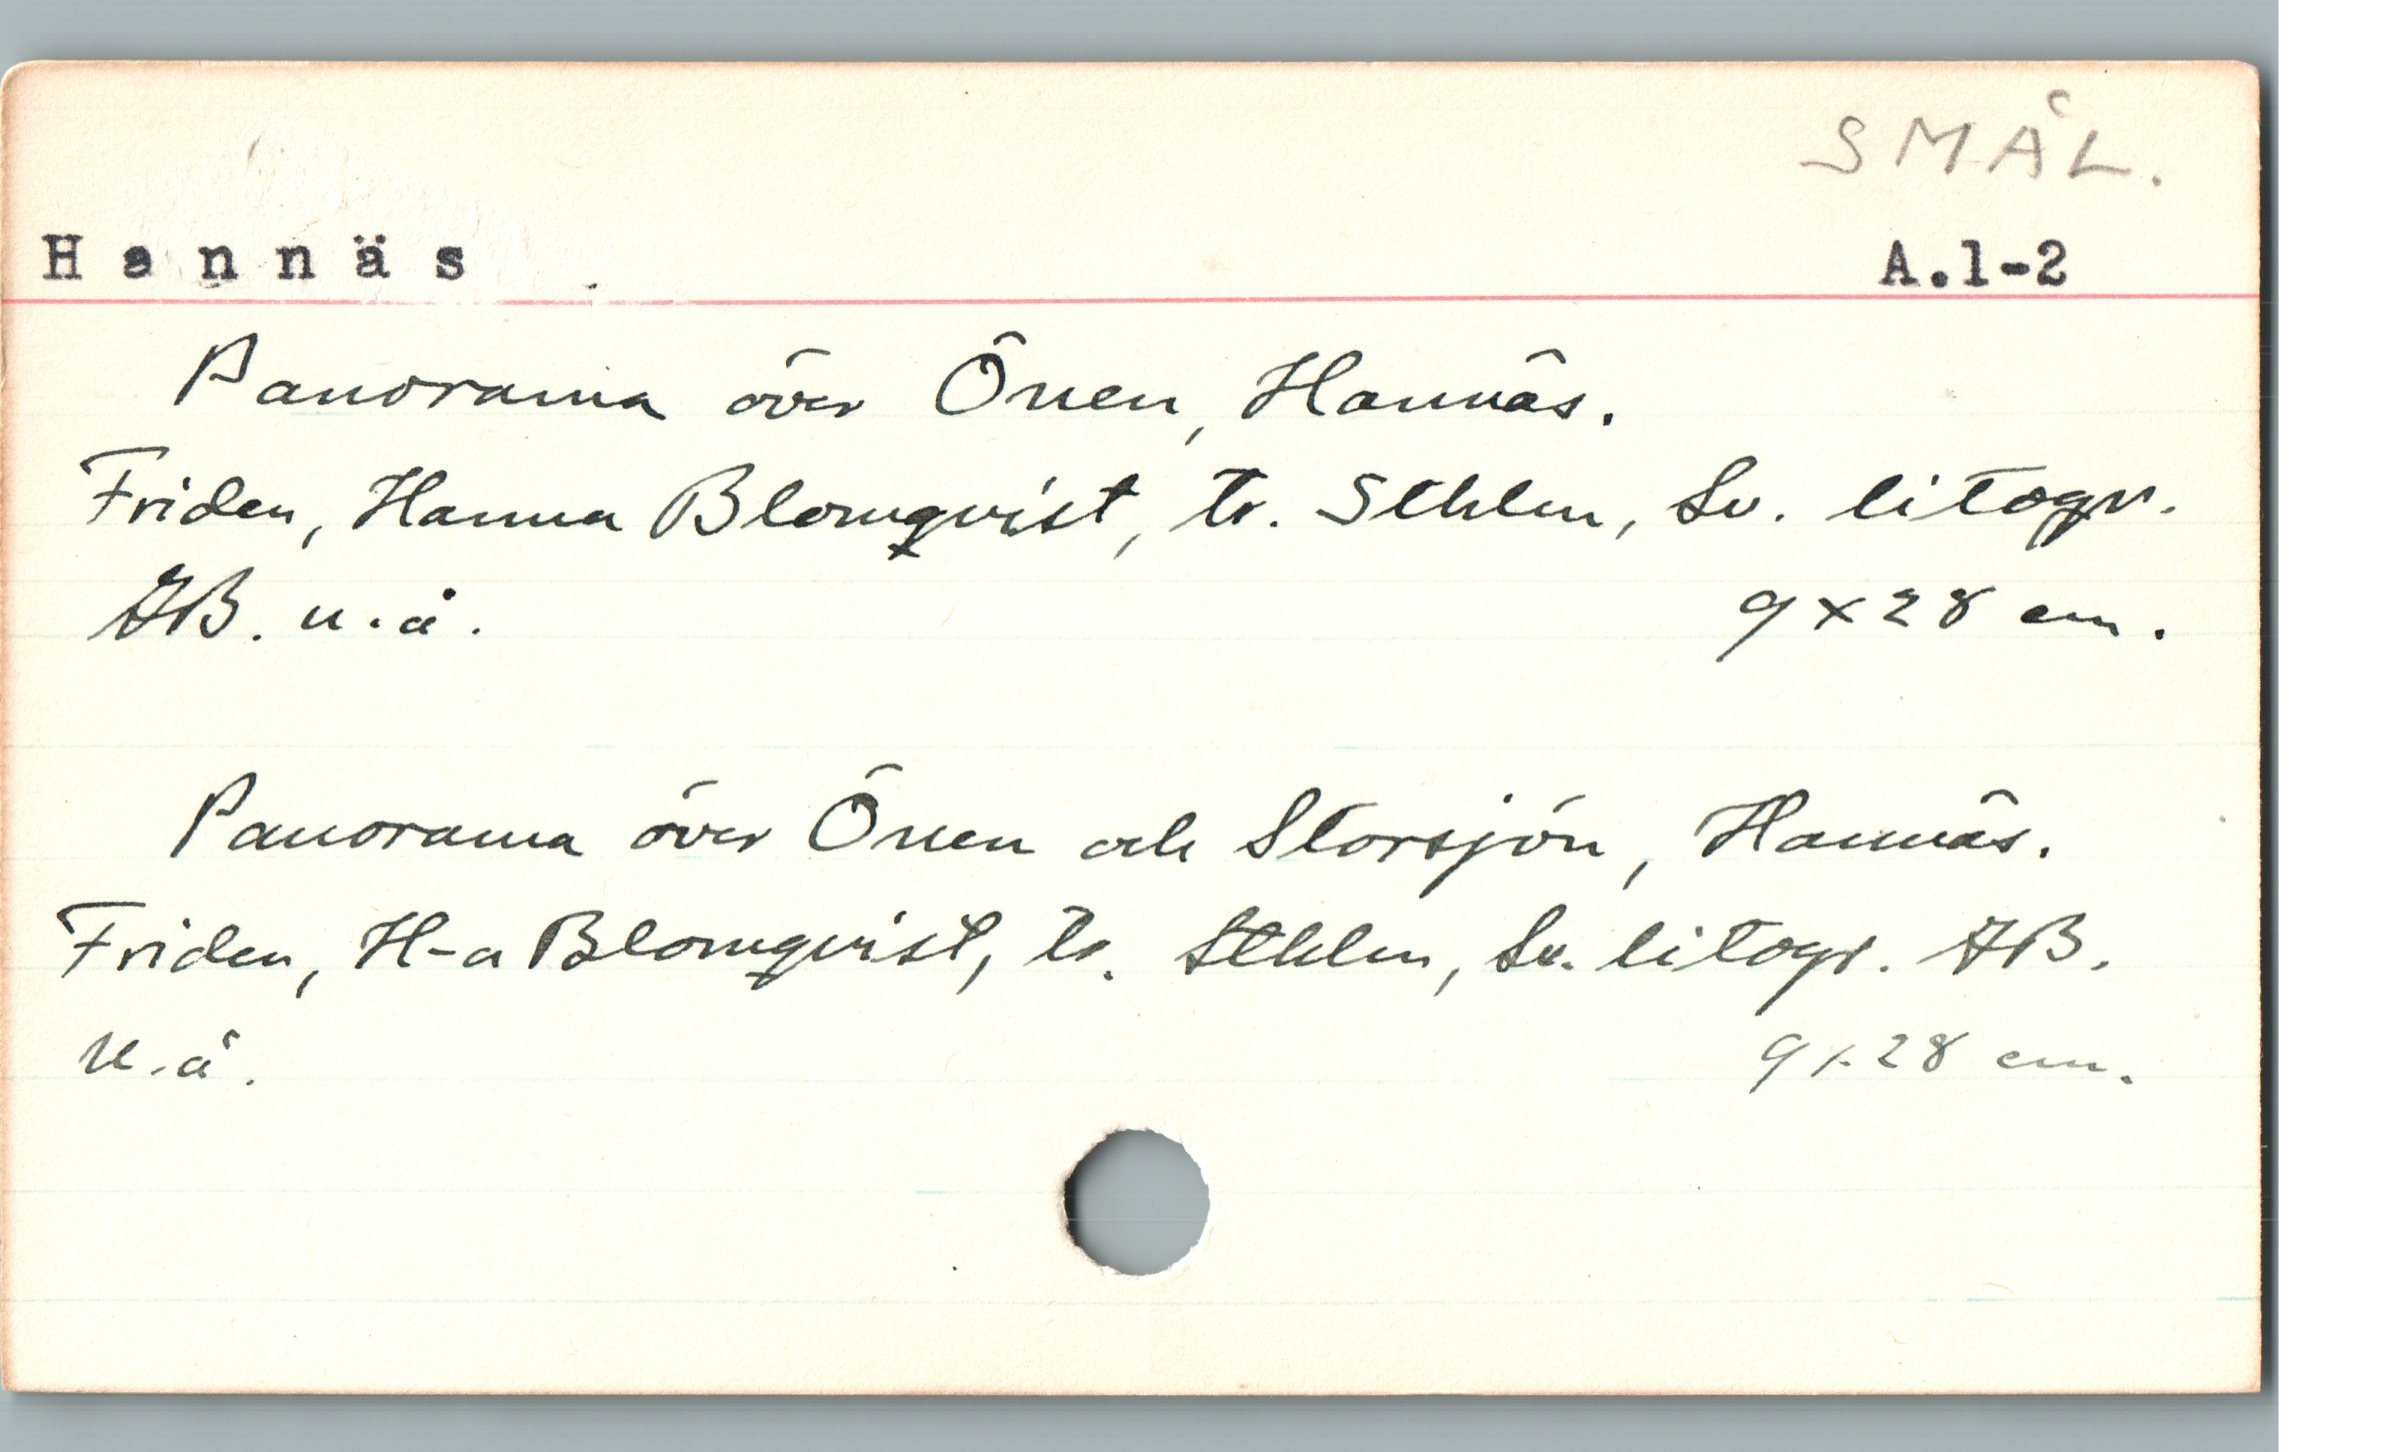 SMÅL.
Hannäs A.1-2
Panorama över Önen, Hannäs.
Friden, Hanna Blomqvist, tr. Sthlm, Sv. litogr.
AB. u.å. 9 x 28 cm.
Panorama över Önen och Storsjön, Hannäs.
Friden, H-a Blomqvist, tr. Sthlm, Sv. litogr. AB.
U.å. 9 x 28 cm.